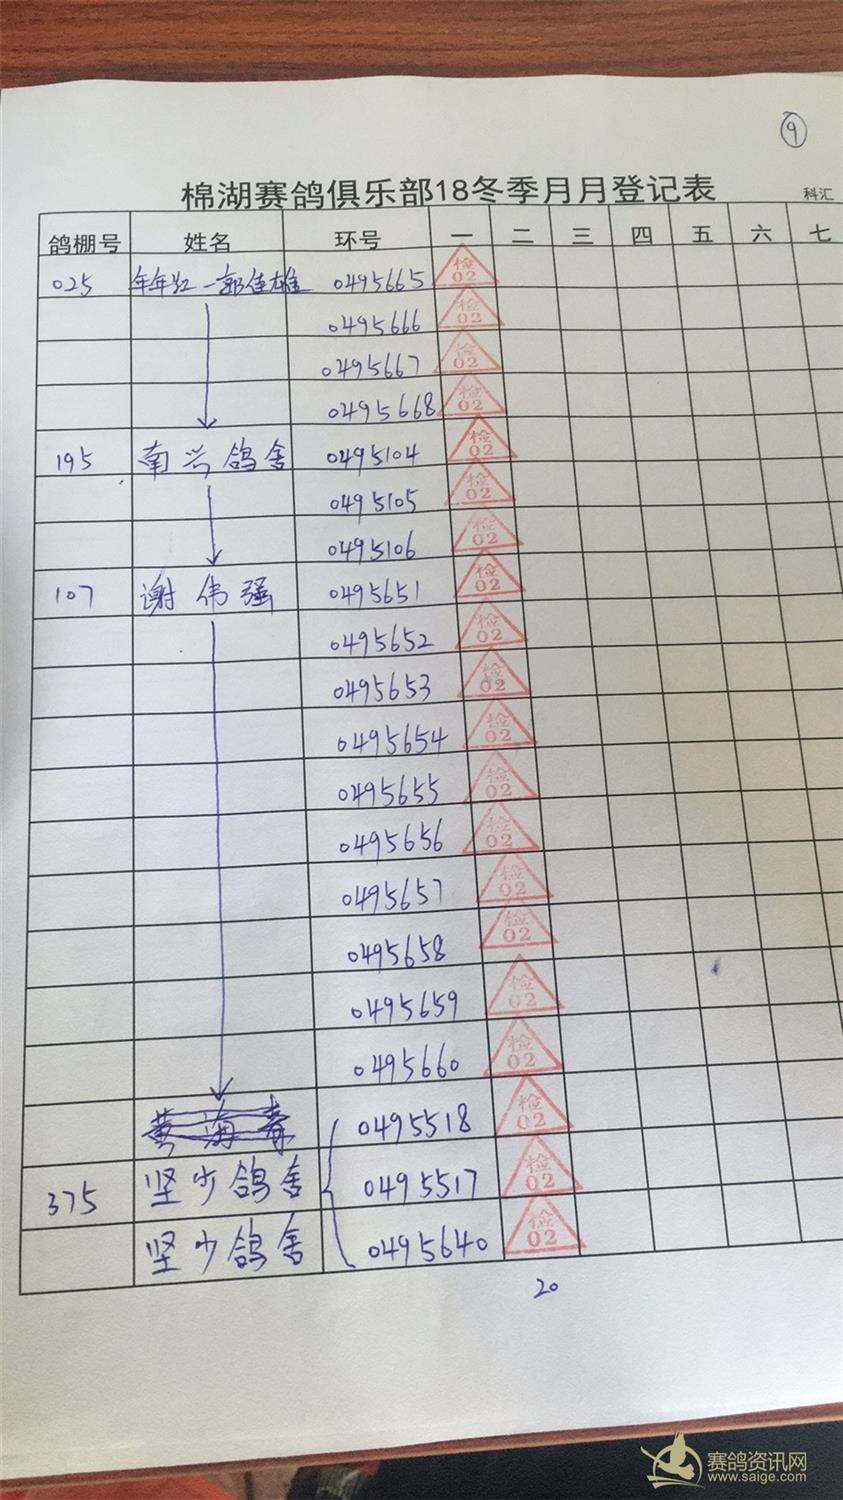 9
棉湖赛鸽俱乐部18冬季月月登记表 科汇
鸽棚号 姓名 环号 一 二 三 四 五 六 七
025 年年红-郭佳雄 0495665 检02
0495666 检02
0495667 检02
0495668 检02
195 南兴鸽舍 0495104 检02
0495105 检02
0495106 检02
107 谢伟强 0495651 检02
0495652 检02
0495653 检02
0495654 检02
0495655 检02
0495656 检02
0495657 检02
0495658 检02
0495659 检02
0495660 检02
0495518 检02
375 坚少鸽舍 0495517 检02
坚少鸽舍 0495640 检02
20
赛鸽资讯网
www.saige.com